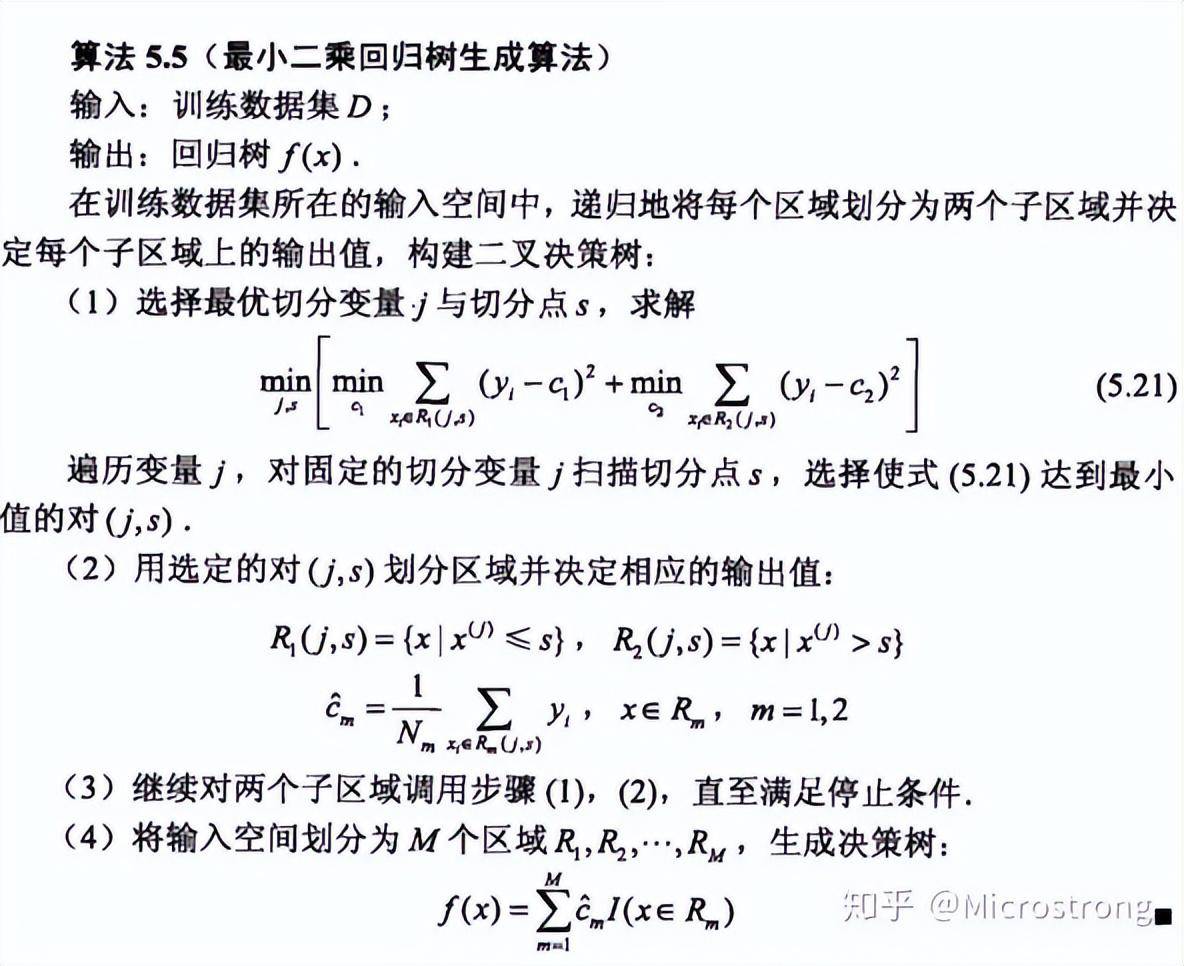 算法 5.5（最小二乘回归树生成算法）
输入：训练数据集 D；
输出：回归树 f(x)．
在训练数据集所在的输入空间中，递归地将每个区域划分为两个子区域并决
定每个子区域上的输出值，构建二叉决策树：
（1）选择最优切分变量 j 与切分点 s，求解
min_{j,s} [ min_{c₁} ∑_{xᵢ∈R₁(j,s)} (yᵢ − c₁)² + min_{c₂} ∑_{xᵢ∈R₂(j,s)} (yᵢ − c₂)² ] (5.21)
遍历变量 j，对固定的切分变量 j 扫描切分点 s，选择使式 (5.21) 达到最小
值的对 (j,s)．
（2）用选定的对 (j,s) 划分区域并决定相应的输出值：
R₁(j,s) = {x | x^{(j)} ≤ s}， R₂(j,s) = {x | x^{(j)} > s}
ĉₘ = 1/Nₘ ∑_{xᵢ∈Rₘ(j,s)} yᵢ， x∈Rₘ， m = 1,2
（3）继续对两个子区域调用步骤 (1)，(2)，直至满足停止条件．
（4）将输入空间划分为 M 个区域 R₁,R₂,⋯,R_M，生成决策树：
f(x) = ∑_{m=1}^{M} ĉₘ I(x∈Rₘ)
知乎 @Microstrong